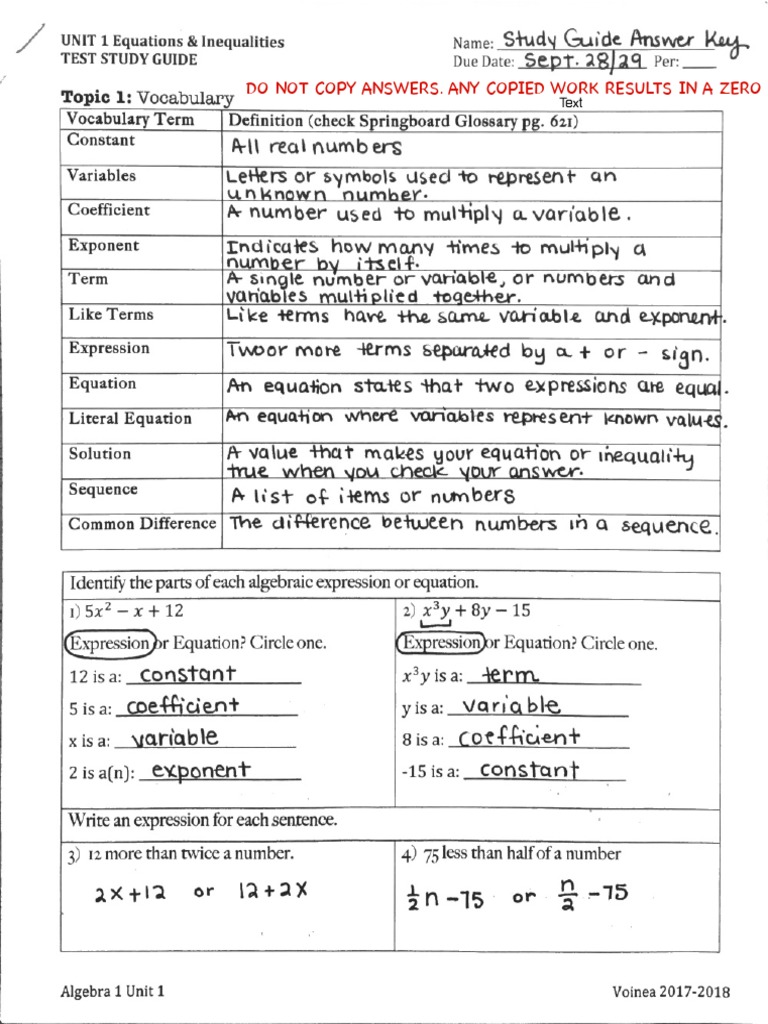 UNIT 1 Equations & Inequalities
TEST STUDY GUIDE
Name: Study Guide Answer Key
Due Date: Sept. 28/29 Per: ____
DO NOT COPY ANSWERS. ANY COPIED WORK RESULTS IN A ZERO
Text
Topic 1: Vocabulary
Vocabulary Term Definition (check Springboard Glossary pg. 621)
Constant All real numbers
Variables Letters or symbols used to represent an
unknown number.
Coefficient A number used to multiply a variable.
Exponent Indicates how many times to multiply a
number by itself.
Term A single number or variable, or numbers and
variables multiplied together.
Like Terms Like terms have the same variable and exponent.
Expression Two or more terms separated by a + or - sign.
Equation An equation states that two expressions are equal.
Literal Equation An equation where variables represent known values.
Solution A value that makes your equation or inequality
true when you check your answer.
Sequence A list of items or numbers
Common Difference The difference between numbers in a sequence.
Identify the parts of each algebraic expression or equation.
1) 5x² − x + 12
Expression or Equation? Circle one.
12 is a: constant
5 is a: coefficient
x is a: variable
2 is a(n): exponent
2) x³y + 8y − 15
Expression or Equation? Circle one.
x³y is a: term
y is a: variable
8 is a: coefficient
-15 is a: constant
Write an expression for each sentence.
3) 12 more than twice a number.
2x+12 or 12+2x
4) 75 less than half of a number
½n-75 or n/2 -75
Algebra 1 Unit 1
Voinea 2017-2018